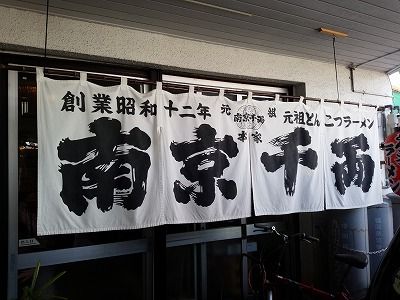 創業昭和十二年 元祖 元祖とんこつラーメン
南京千両
本家
南京千両